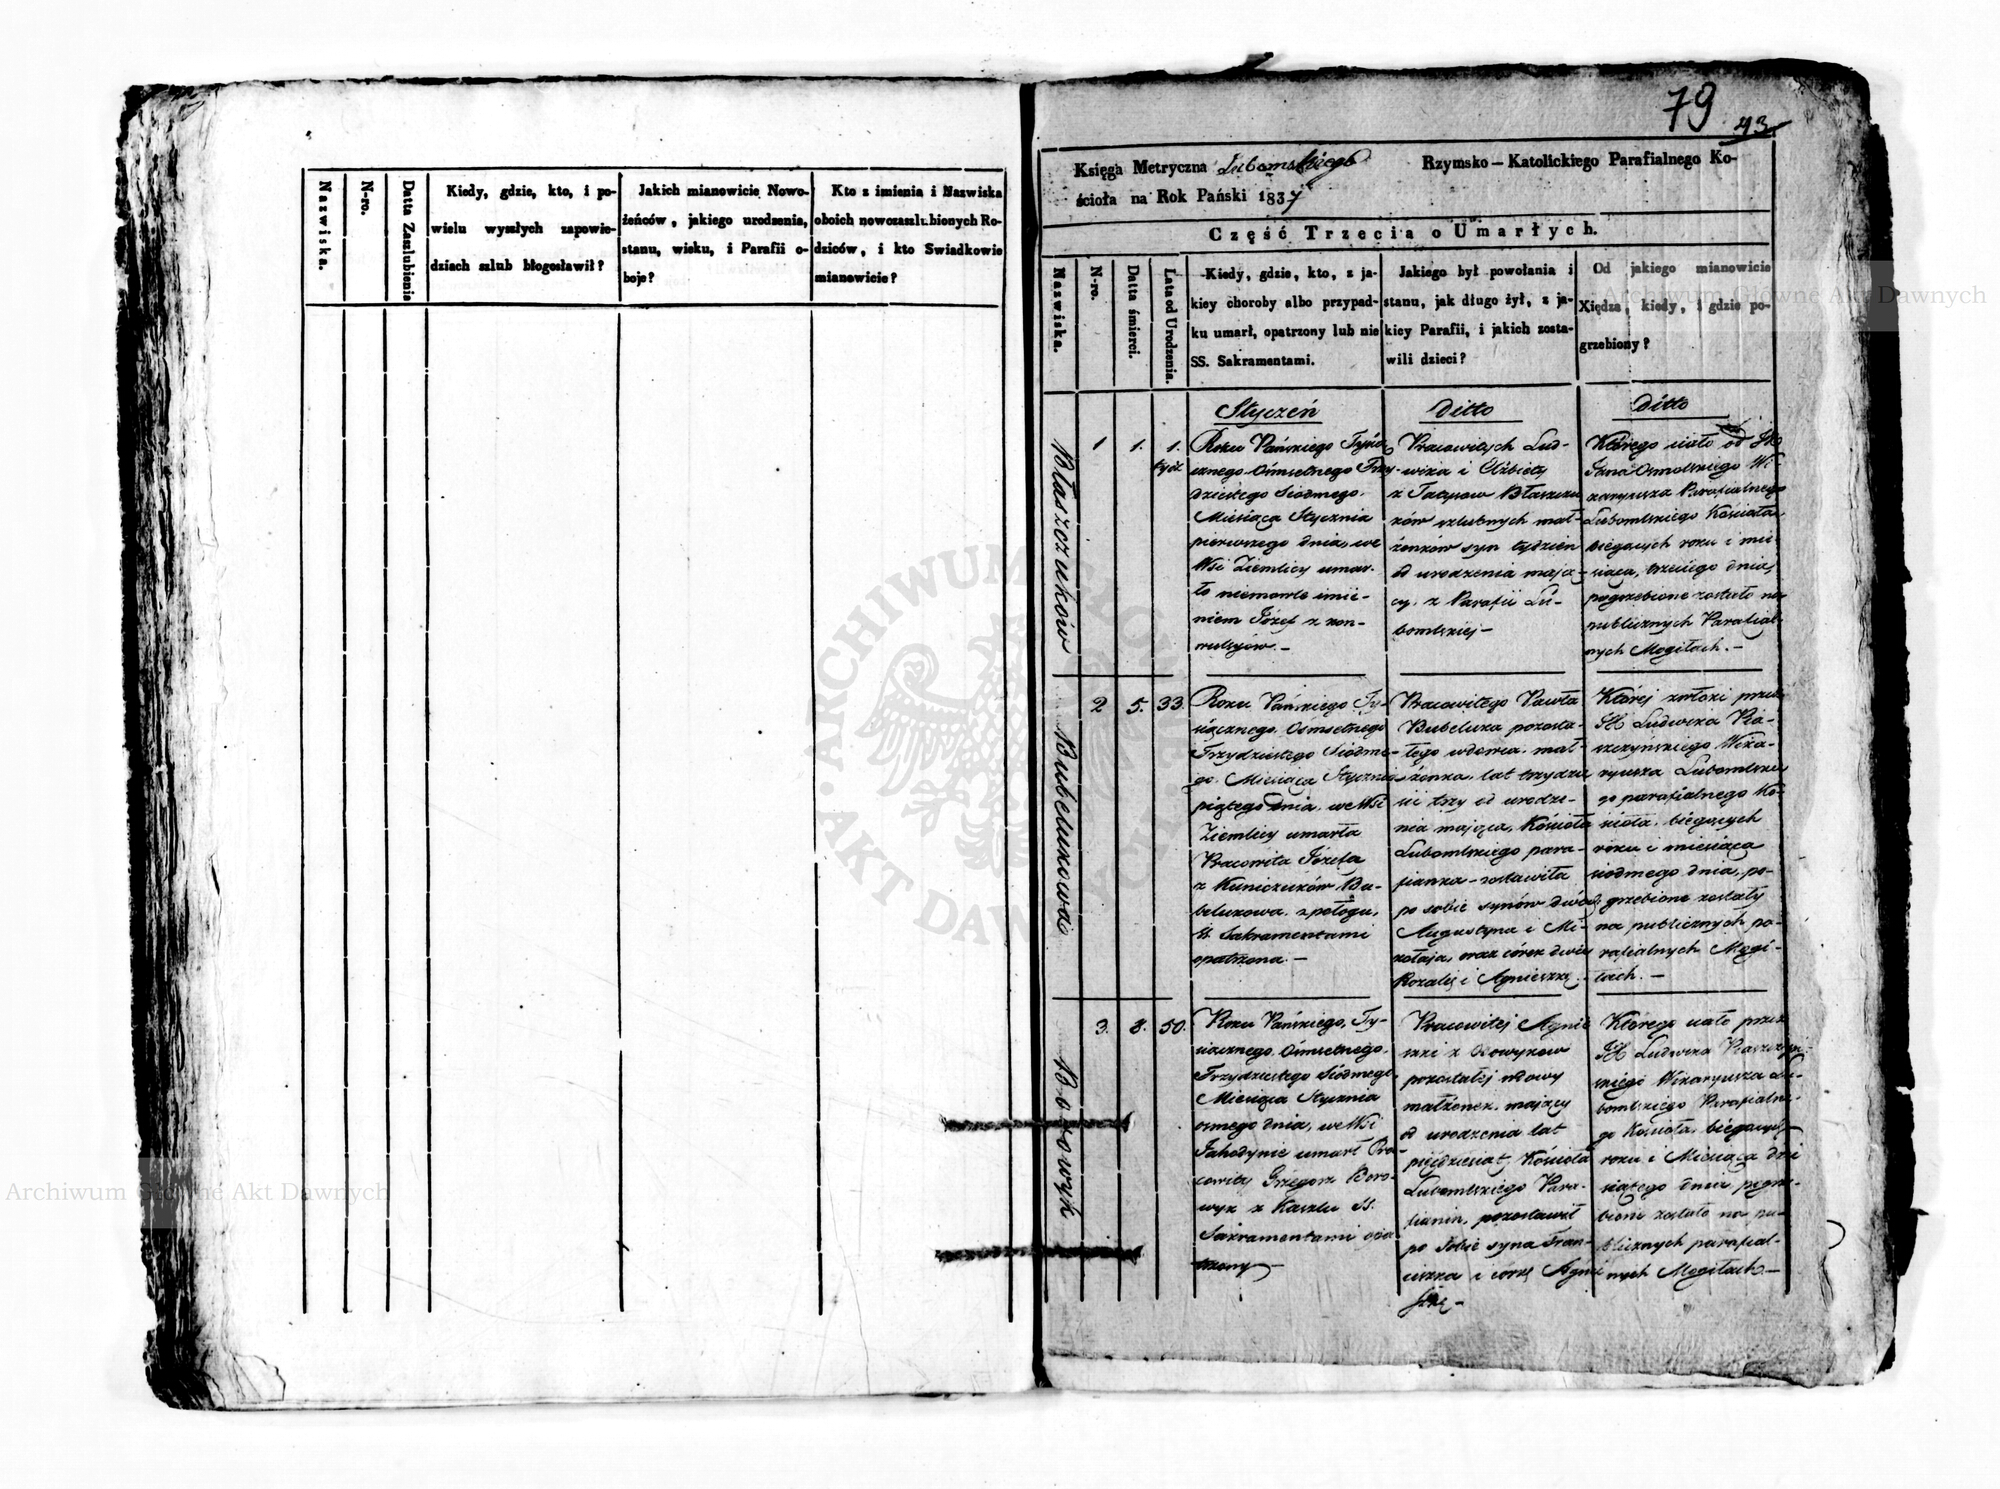 79
43
Nazwiska.
N-ro.
Datta Zaszlubienia
Kiedy, gdzie, kto, i po-
wielu wyszłych zapowie-
dziach szlub błogosławił?
Jakich mianowicie Nowo-
żeńców, jakiego urodzenia,
stanu, wieku, i Parafii o-
boje?
Kto z imienia i Nazwiska
oboich nowozaszlubionych Ro-
dziców, i kto Swiadkowie
mianowicie?
Księga Metryczna Lubomskiego Rzymsko-Katolickiego Parafialnego Ko-
ścioła na Rok Pański 1837
Część Trzecia o Umarłych.
Nazwiska.
N-ro.
Datta śmierci.
Lata od Urodzenia.
Kiedy, gdzie, kto, z ja-
kiey choroby albo przypad-
ku umarł, opatrzony lub nie
SS. Sakramentami.
Jakiego był powołania i
stanu, jak długo żył, z ja-
kiey Parafii, i jakich zosta-
wili dzieci?
Od jakiego mianowicie
Xiędza, kiedy, i gdzie po-
grzebiony?
Błaszczuków
1
1.
1.
tydź.
Styczeń
Roku Pańskiego Tysią
cznego Ośmsetnego Trzy
dziestego Siódmego.
Miesiąca Stycznia
pierwszego dnia, we
Wsi Ziemlicy umar-
ło niemowle imie-
niem Józef z kon-
wulsyów. -
ditto
Pracowitych Lud-
wika i Elżbiety
z Błaszczu
ków szlubnych mał-
żonków syn tydzień
od urodzenia mają-
cy. z Parafii Lu-
bomlskiej -
ditto
Którego ciało od JX
Jana Osmolskiego Wi-
karyusza Parafialnego
Lubomlskiego Kościoła,
biegących roku i mie-
siąca, trzeciego dnia,
pogrzebione zostało na
publicznych Parafial-
nych Mogiłach. -
Bubelukowa
2
5.
33.
Roku Pańskiego Ty-
siącznego Ośmsetnego
Trzydziestego Siódme-
go. Miesiąca Stycznia
piątego dnia. we Wsi
Ziemlicy umarła
Pracowita Józefa
z Kuniczuków Bu-
belukowa. z połogu,
SS. Sakramentami
opatrzona. -
Pracowitego Pawła
Bubeluka pozosta-
łego wdowca. mał-
żonka, lat trzydzie
ści trzy od urodze-
nia mająca, Kościoła
Lubomlskiego para-
fianka - zostawiła
po sobie synów dwóch,
Augustyna i Mi-
kołaja, oraz córek dwie
Rozalię i Agnieszkę. -
Której zwłoki przez
JX Ludwika Pia-
szczyńskiego Wika-
ryusza Lubomlskie
go parafialnego Ko-
ścioła. biegących
roku i miesiąca
siodmego dnia, po-
grzebione zostały
na publicznych pa-
rafialnych Mogi-
łach. -
Borowyk
3.
8.
50.
Roku Pańskiego, Ty-
siącznego. Ośmsetnego.
Trzydziestego Siódmego
Miesiąca Stycznia
osmego dnia, we Wsi
Jahodynie umarł Pra
cowity Grzegorz Boro-
wyk z Kaszlu SS.
Sakramentami opa
trzony -
Pracowitej Agnie
szki z
pozostałej wdowy
małżonek. mający
od urodzenia lat
pięćdziesiąt, Kościoła
Lubomlskiego Para-
fianin, pozostawił
po sobie syna Fran-
ciszka i corkę Agnie
szkę -
Którego ciało przez
JX Ludwika Piaszczyń-
skiego Wikaryusza Lu-
bomlskiego Parafialne-
go Kościoła, biegących
roku i Miesiąca dzie
siątego dnia pogrze-
bione zostało na pu-
blicznych parafial-
nych Mogiłach -
Archiwum Główne Akt Dawnych
Archiwum Główne Akt Dawnych
ARCHIWUM GŁÓWNE AKT DAWNYCH